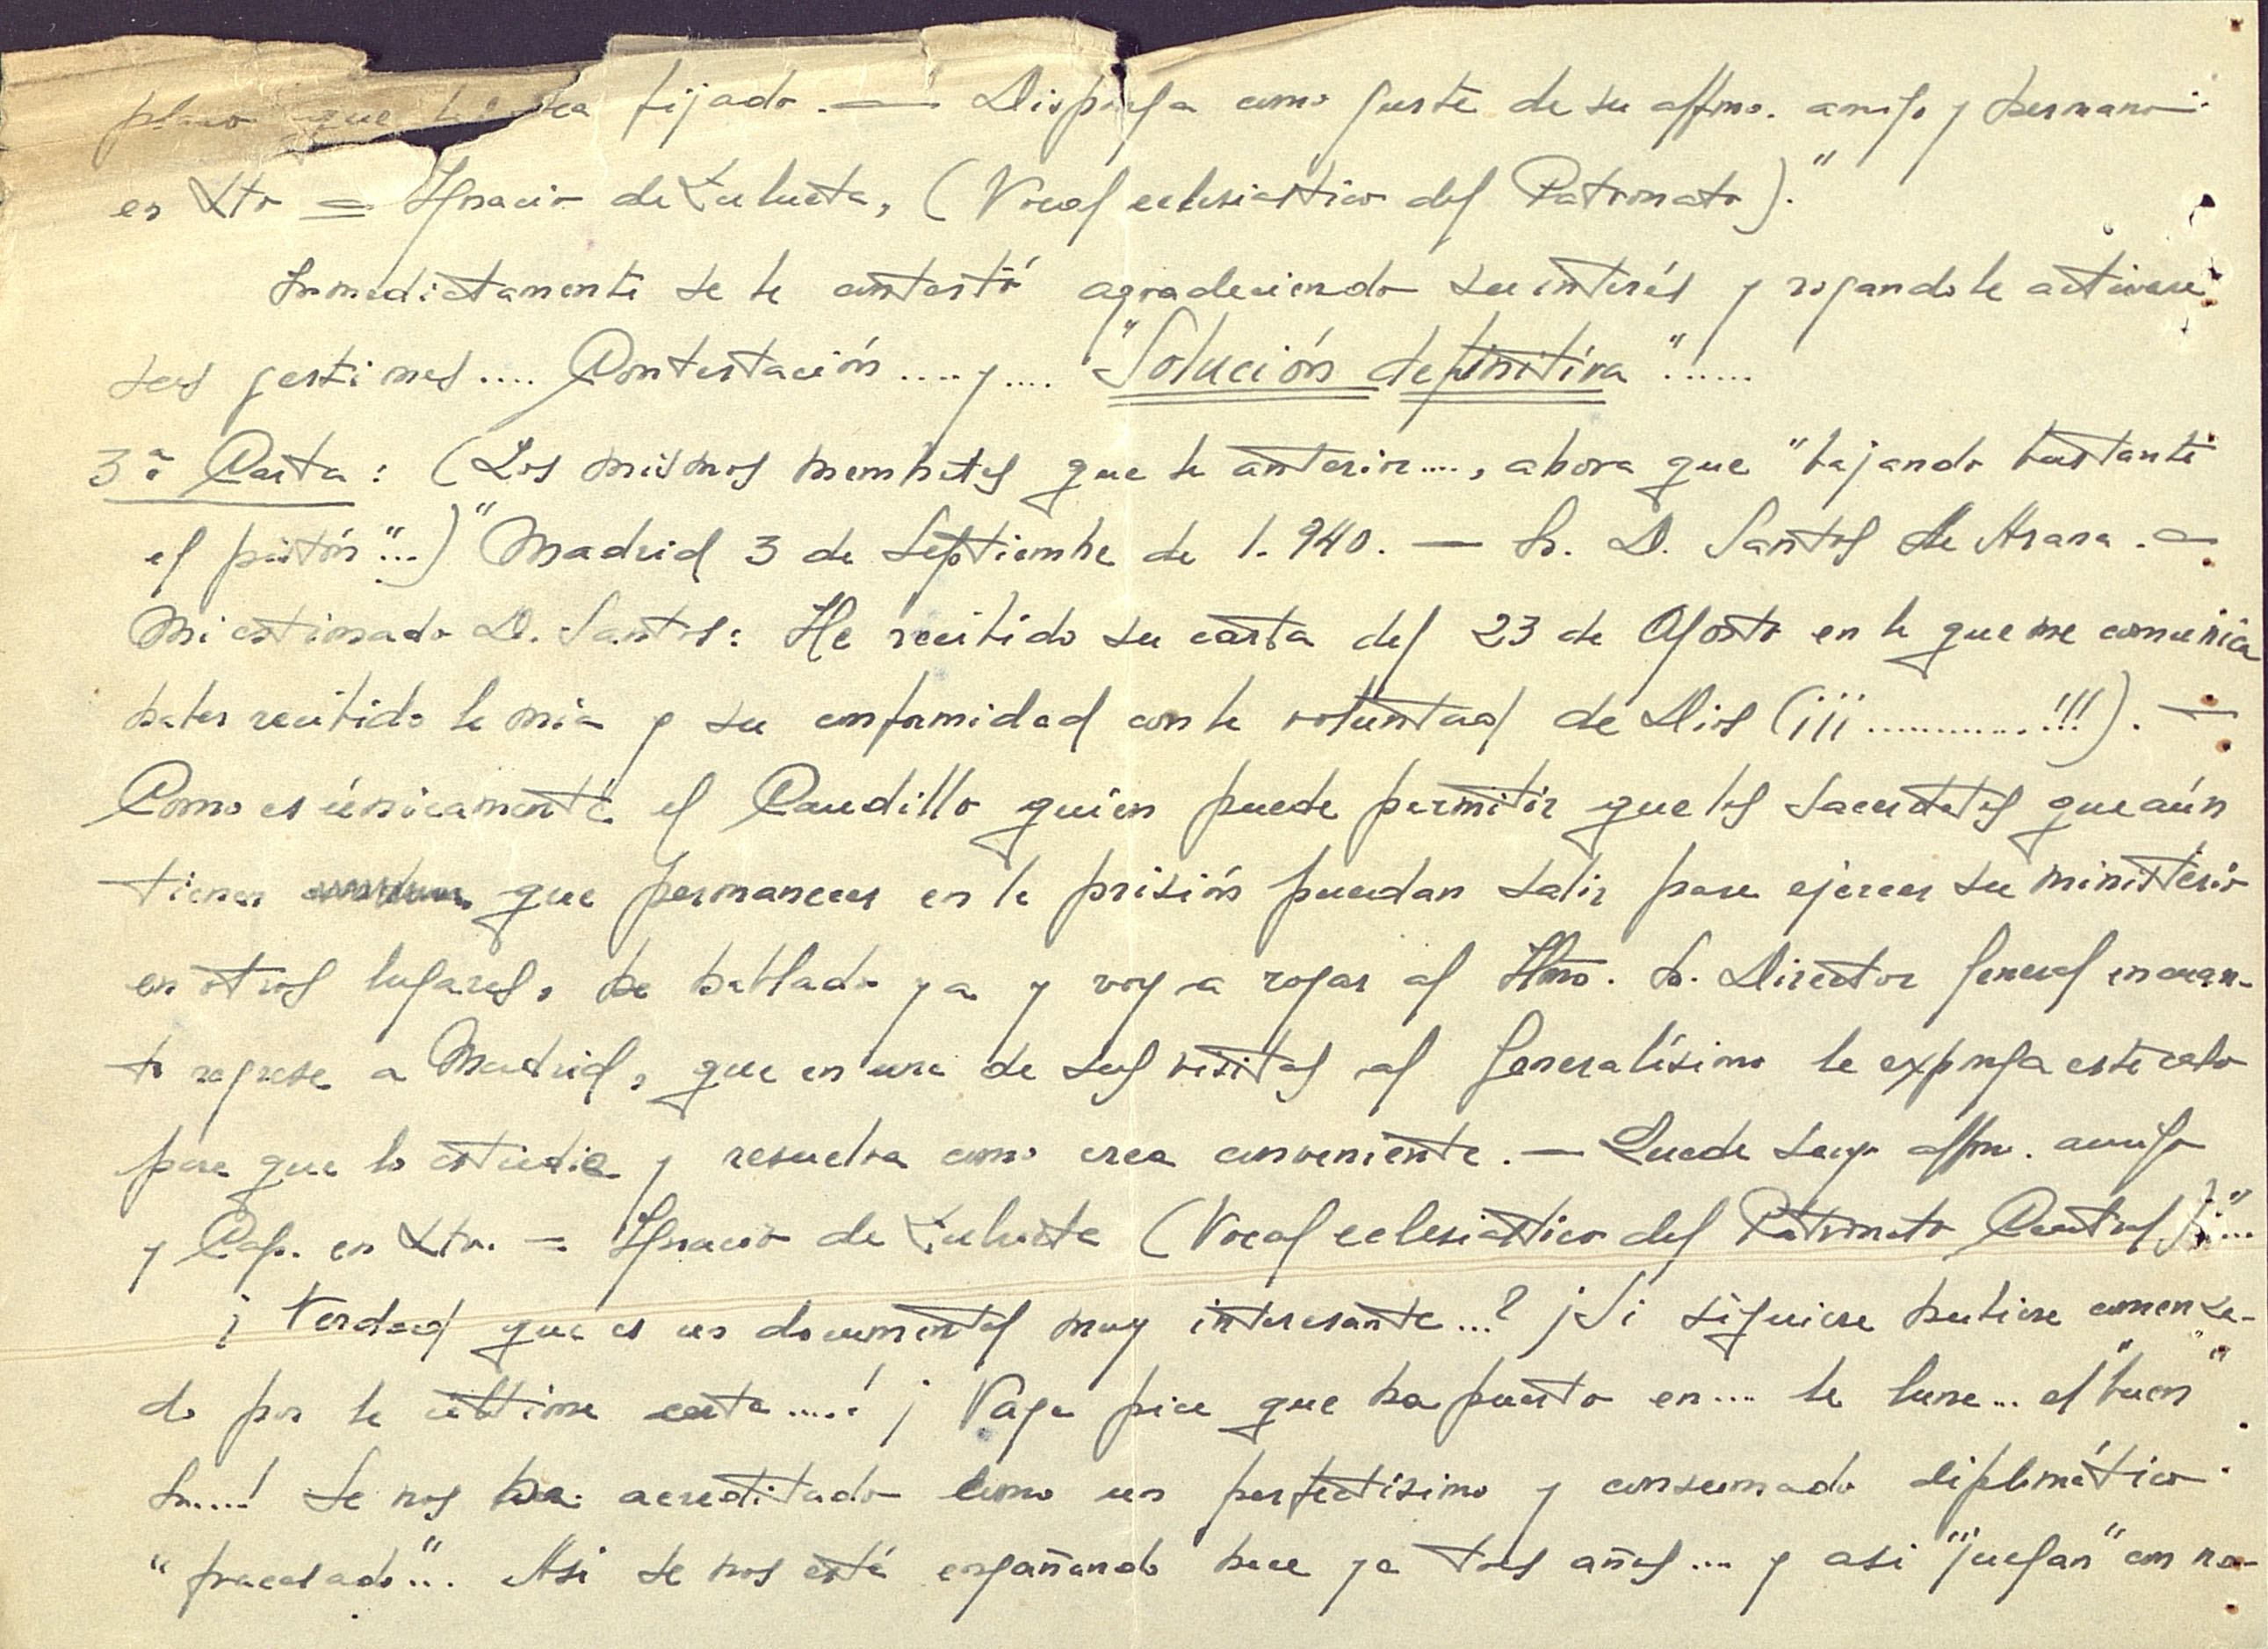 plazo que ha fijado. — Disponga como guste de su affmo. amigo y hermano
en Xto = Ignacio de Zulueta, (Vocal eclesiástico del Patronato)."
Inmediatamente se le contestó agradeciendo su interés y rogandole activase
sus gestiones.... Contestación .... y .... "Solución definitiva" ......
3ª Carta: (Los mismos membretes que la anterior...., ahora que "bajando bastante
el pistón"...) "Madrid 3 de Septiembre de 1.940. — Sr. D. Santos de Arana. —
Mi estimado D. Santos: He recibido su carta del 23 de Agosto en la que me comunica
haber recibido la mia y su conformidad con la voluntad de Dios (¡¡¡ ............!!!). —
Como es únicamente el Caudillo quien puede permitir que los sacerdotes que aún
tienen que permanecer en la prisión puedan salir para ejercer su ministerio
en otros lugares, he hablado ya y voy a rogar al Iltmo. Sr. Director General en cuan-
to regrese a Madrid, que en una de sus visitas al Generalísimo le exponga este caso
para que lo estudie y resuelva como crea conveniente. — Quede suyo affmo. amigo
y Cap. en Xto. = Ignacio de Zulueta (Vocal eclesiástico del Patronato Central)"...
¿Verdad que es un documental muy interesante...? ¡Si siquiera hubiera comenza-
do por la última carta....! ¡Vaya pica que ha puesto en.... la luna... el "buen"
Sr....! Se nos ha acreditado como un perfectísimo y consumado diplomático
"fracasado"... Asi se nos está engañando hace ya tres años.... y asi "juegan" con no-